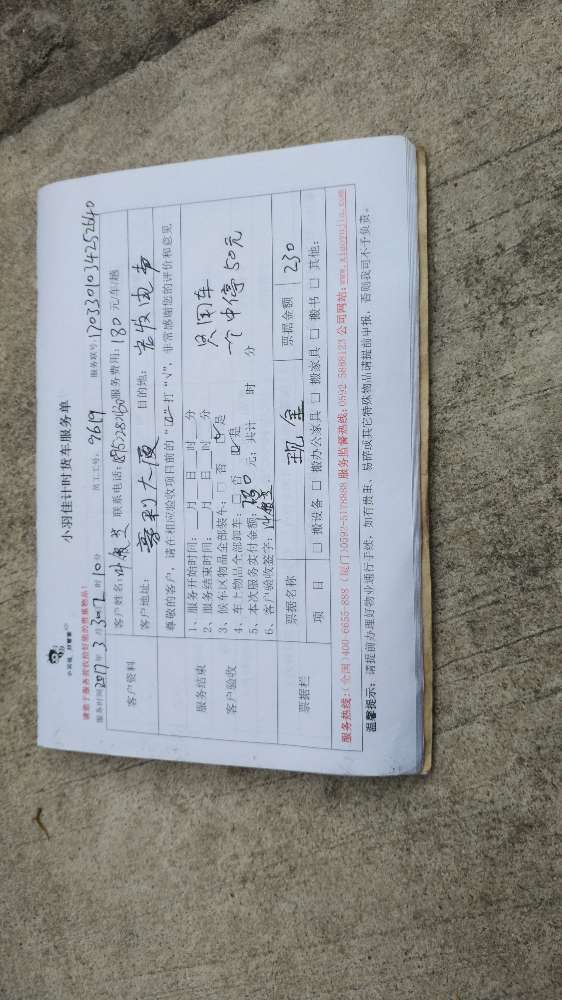 小羽佳计时货车服务单
小羽佳，好管家
请勿于服务前收拾好您的贵重物品!
服务时间 2017年3月30日12时10分 员工工号: 9619 服务联号: 1703301034252640
客户资料
客户姓名: 叶 联系电话: 服务费用: 180 元/车/趟
客户地址: 大厦 目的地: 宏发电声
尊敬的客户，请在相应验收项目前的“□”打“√”，非常感谢您的评价和意见
服务结束
客户验收
1、服务开始时间: 月 日 时 分
2、服务结束时间: 月 日 时 分 只用车
3、候车区物品全部装车: □ 否 ☑ 是 一个中停 50元
4、车上物品全部卸车: □ 否 ☑ 是
5、本次服务实付金额: 元; 共计 时 分
6、客户验收签字: 叶
票据栏
票据名称 现金 票据金额 230
项 目 □ 搬设备 □ 搬办公家具 □ 搬家具 □ 搬书 □ 其他:
服务热线:(全国)400-6655-888 (厦门)0592-5178888 服务监督热线:0592-5888123 公司网站:www.xiaoyujia.com
温馨提示: 请提前办理好物业通行手续，如有贵重、易碎或其它特殊物品请提前申报，否则我司不予负责。